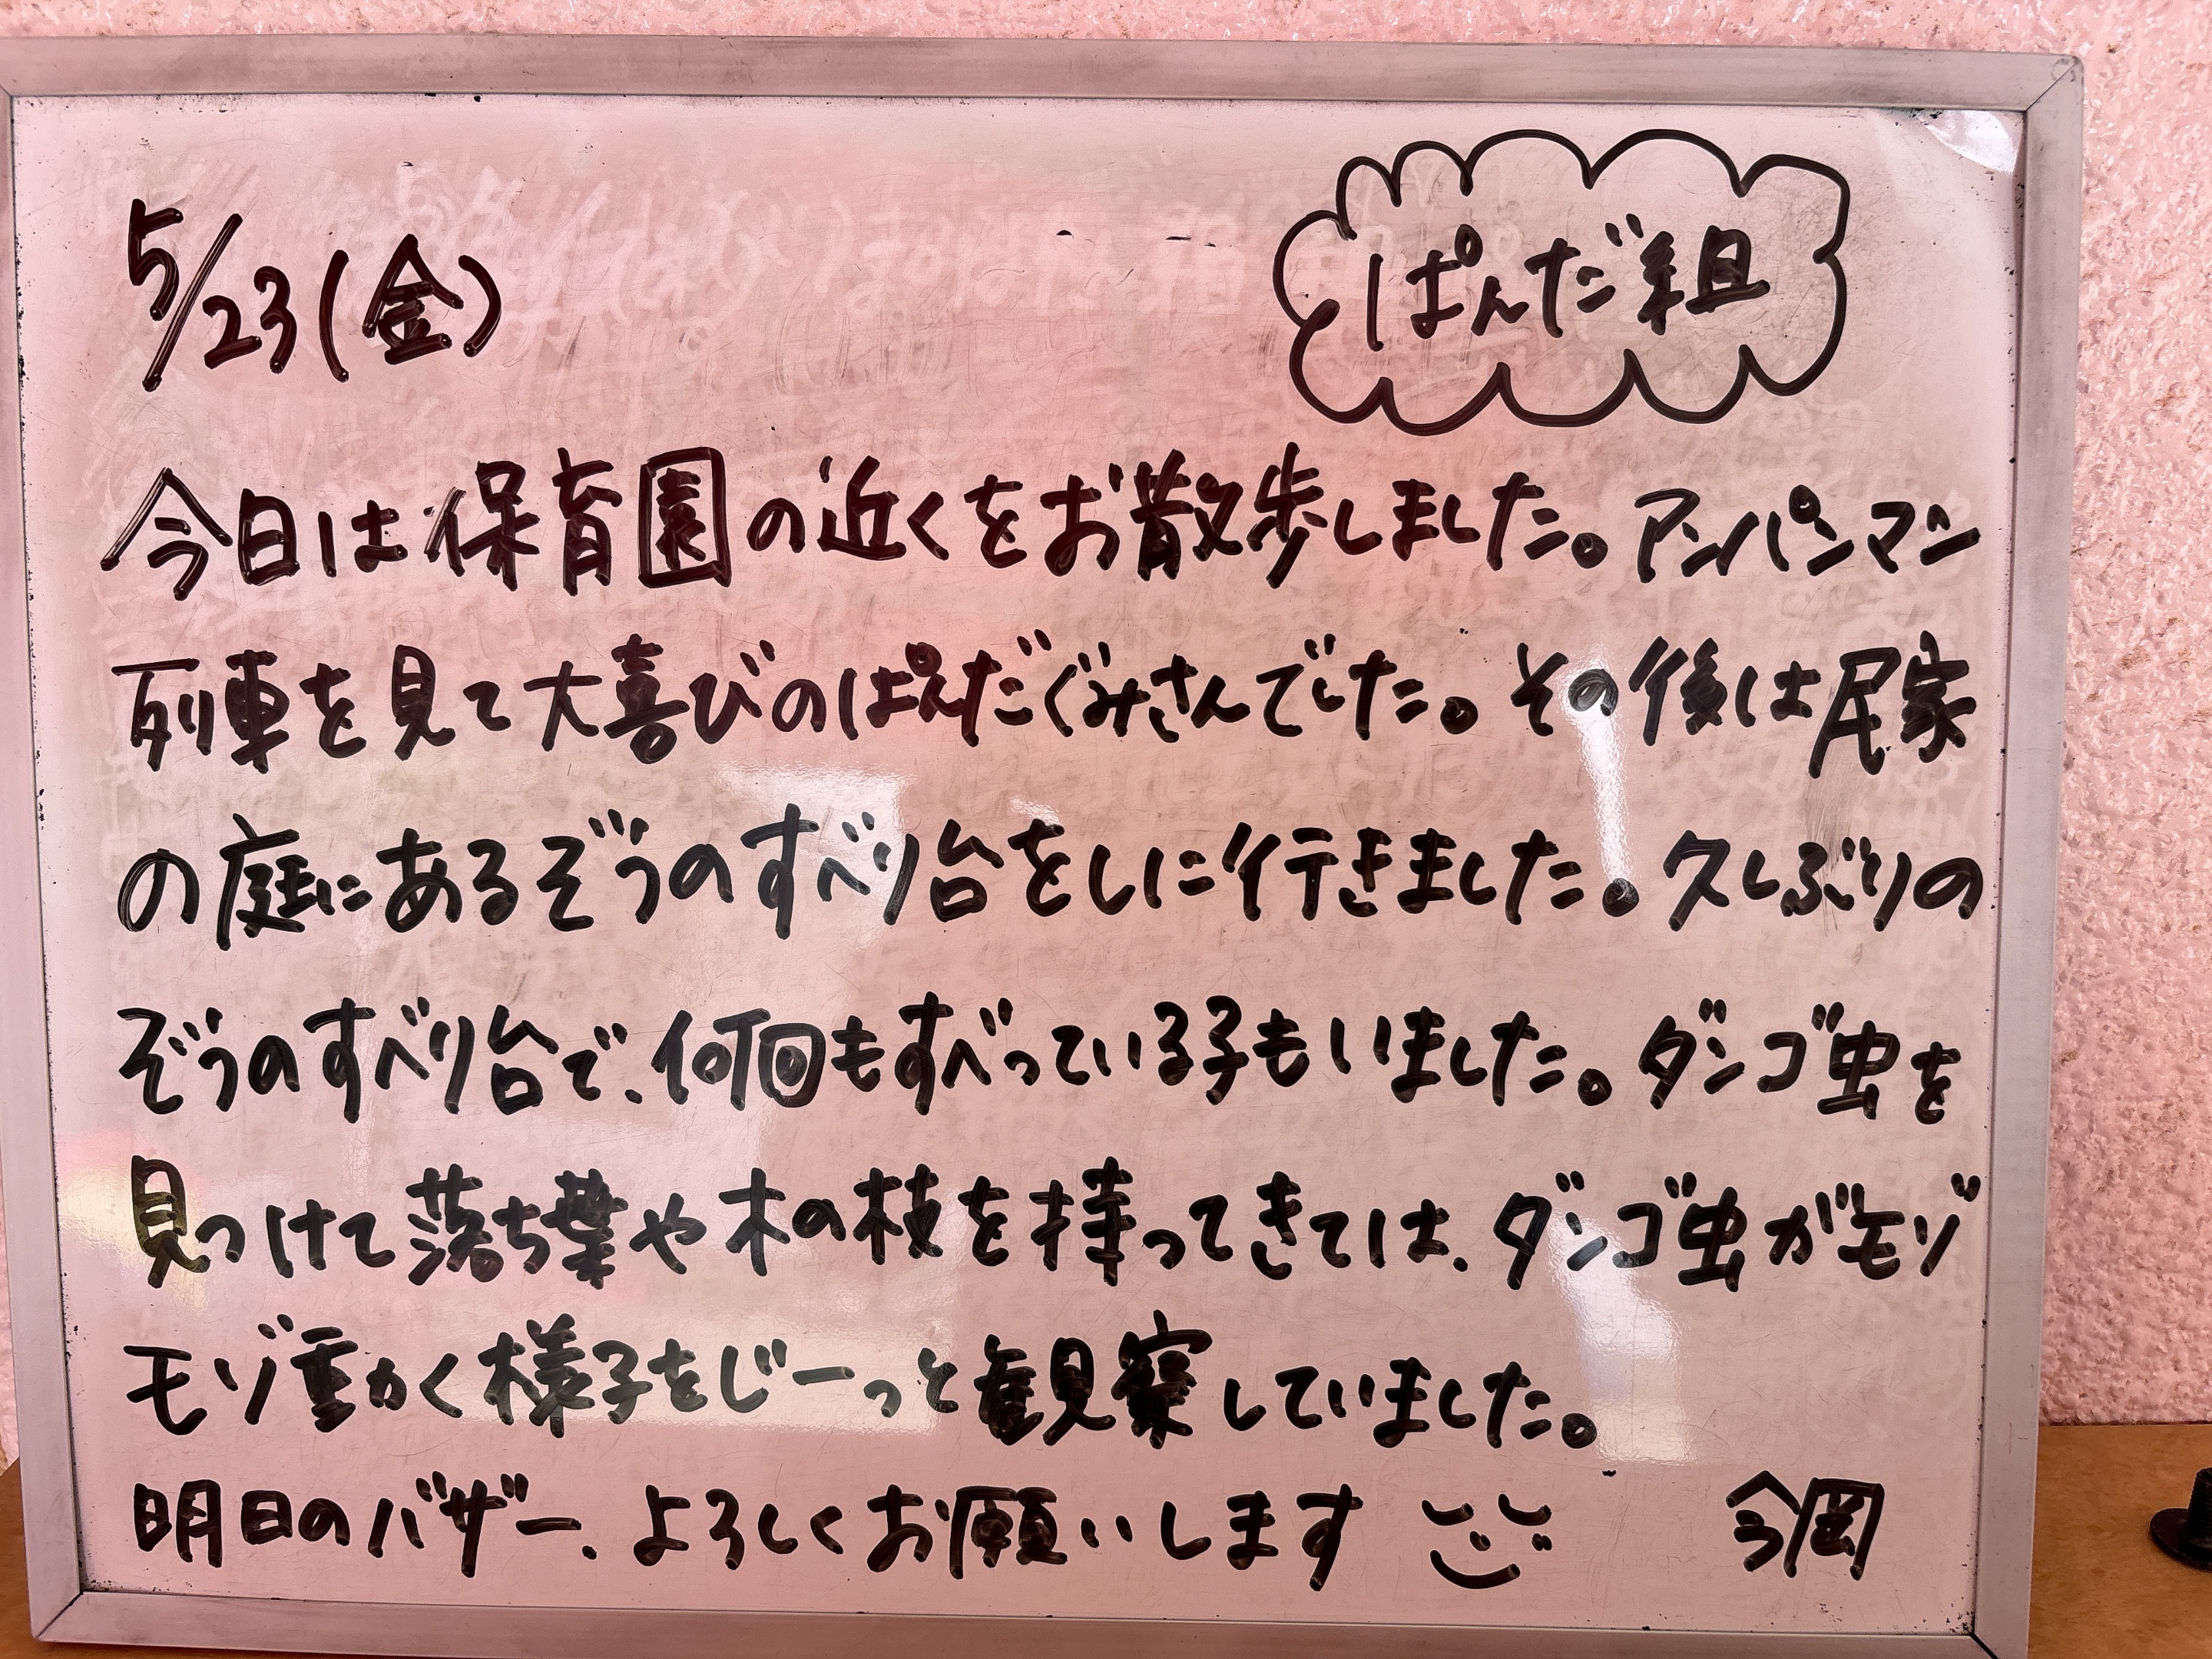 5/23(金)
ぱんだ組
今日は保育園の近くをお散歩しました。アンパンマン
列車を見て大喜びのぱんだぐみさんでした。その後は民家
の庭にあるぞうのすべり台をしに行きました。久しぶりの
ぞうのすべり台で、何回もすべっている子もいました。ダンゴ虫を
見つけて落ち葉や木の枝を持ってきては、ダンゴ虫がモゾ
モゾ動く様子をじーっと観察していました。
明日のバザー、よろしくお願いします
今岡